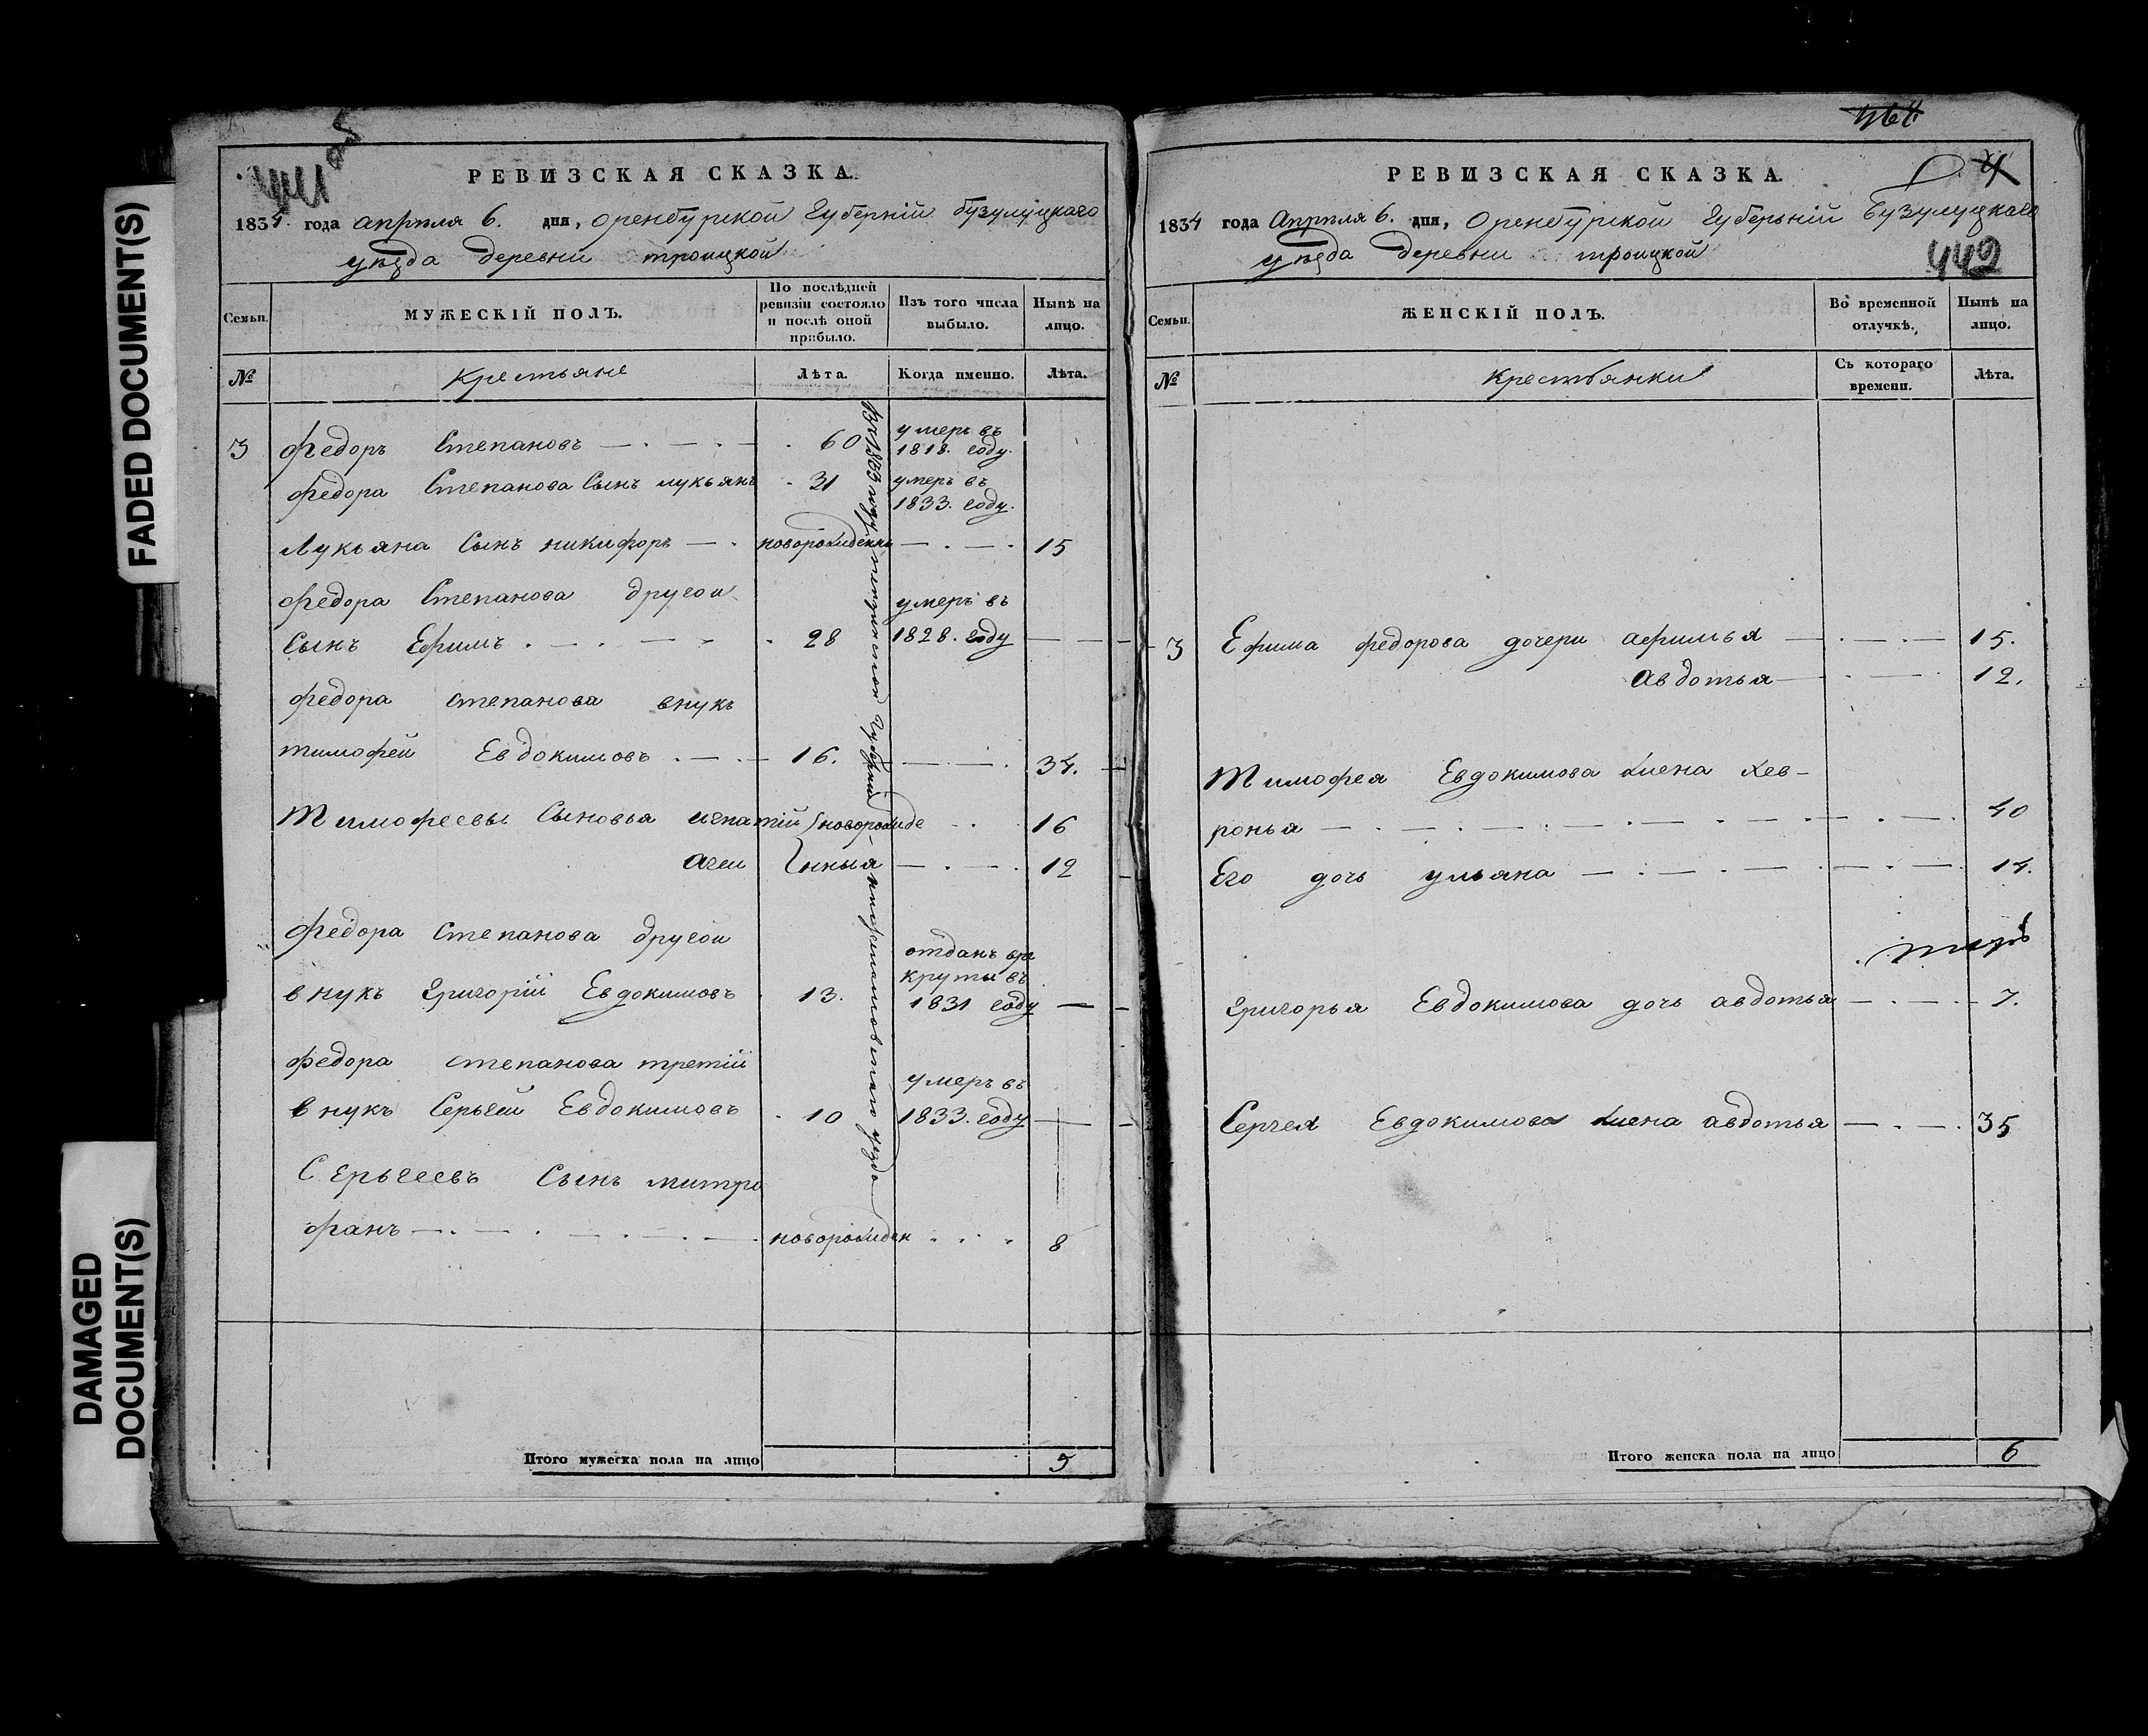 FADED DOCUMENT(S)
DAMAGED
DOCUMENT(S)
441 об
РЕВИЗСКАЯ СКАЗКА.
1834 года апреля 6. дня, оренбургской губерній бузулуцкаго
уѣзда деревни троицкой
Семьи.
МУЖЕСКІЙ ПОЛЪ.
По послѣдней
ревизіи состояло
и послѣ оной
прибыло.
Изъ того числа
выбыло.
Нынѣ на
лицо.
№
Крестьяне
Лѣта.
Когда именно.
Лѣта.
3 Федоръ Степановъ 60 умеръ въ
1818. году.
Федора Степанова Сынъ лукьянъ 31 умеръ въ
1833. году.
Лукьяна Сынъ никифоръ новорожденны 15
Федора Степанова другои
Сынъ Ефимъ 28 умеръ въ
1828. году
Федора степанова внукъ
тимофеи Евдокимовъ 16. 34.
Тимофеевы Сыновья игнатій новорожде 16
агеи нныя 12
Федора Степанова другои
внукъ Григорій Евдокимовъ 13. отданъ вре
круты въ
1831 году
Федора степанова третій
внукъ Сергей Евдокимовъ 10 умеръ въ
1833. году
Сергеевъ Сынъ митро
фанъ новорожден 8
Итого мужеска пола на лицо 5
464
РЕВИЗСКАЯ СКАЗКА.
4
1834 года Апреля 6. дня, Оренбургской губерьній Бузулуцкаго
уѣзда деревни троицкой
442
Семьи.
ЖЕНСКІЙ ПОЛЪ.
Во временной
отлучкѣ.
Нынѣ на
лицо.
№
Крестьянки
Съ котораго
времени.
Лѣта.
3 Ефима федорова дочери афимья 15.
Авдотья 12.
Тимофея Евдокимова жена хев-
ронья 40
Его дочь ульяна 14.
Григорья Евдокимова дочь авдотья 7.
Сергея Евдокимова жена авдотья 35
Итого женска пола на лицо 6